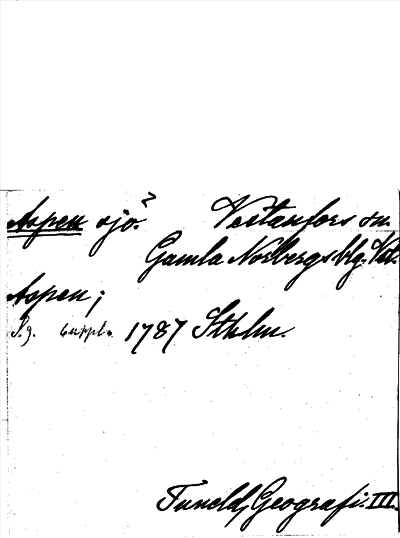 Aspen sjö.? Vestanfors sn.
Gamla Norbergs blg. Vst.
Aspen;
S.g. uppl. 1787 Sthlm.
Tuneld, Geografi. III.